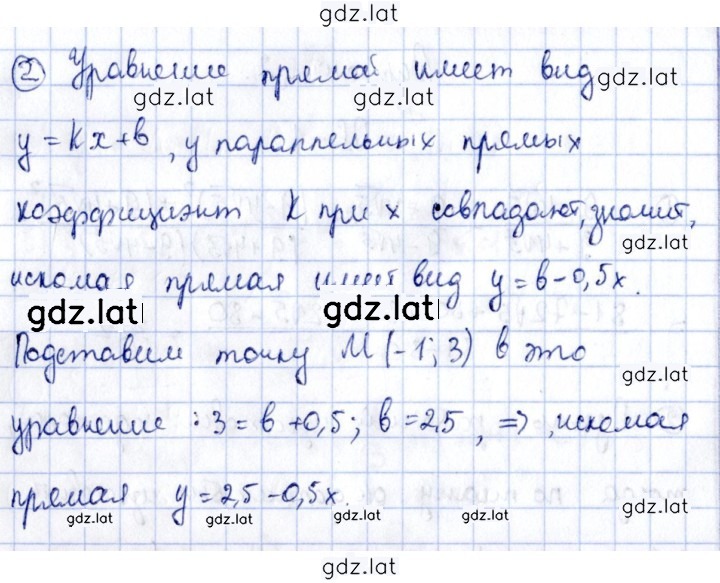 gdz.lat
② Уравнение прямой имеет вид
gdz.lat gdz.lat
y = kx + b, у параллельных прямых
коэффициэнт k при x совпадают, значит,
gdz.lat
искомая прямая имеет вид y = b - 0,5x.
gdz.lat gdz.lat
Подставим точку M(-1; 3) в это
gdz.lat
уравнение: 3 = b + 0,5; b = 2,5, =>, искомая
прямая y = 2,5 - 0,5x.
gdz.lat gdz.lat gdz.lat gdz.lat gdz.lat
gdz.lat